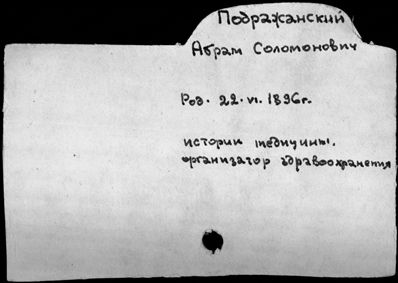 Подражанский
Абрам Соломонович
Род. 22.VI.1896г.
историк медицины.
организатор здравоохранения